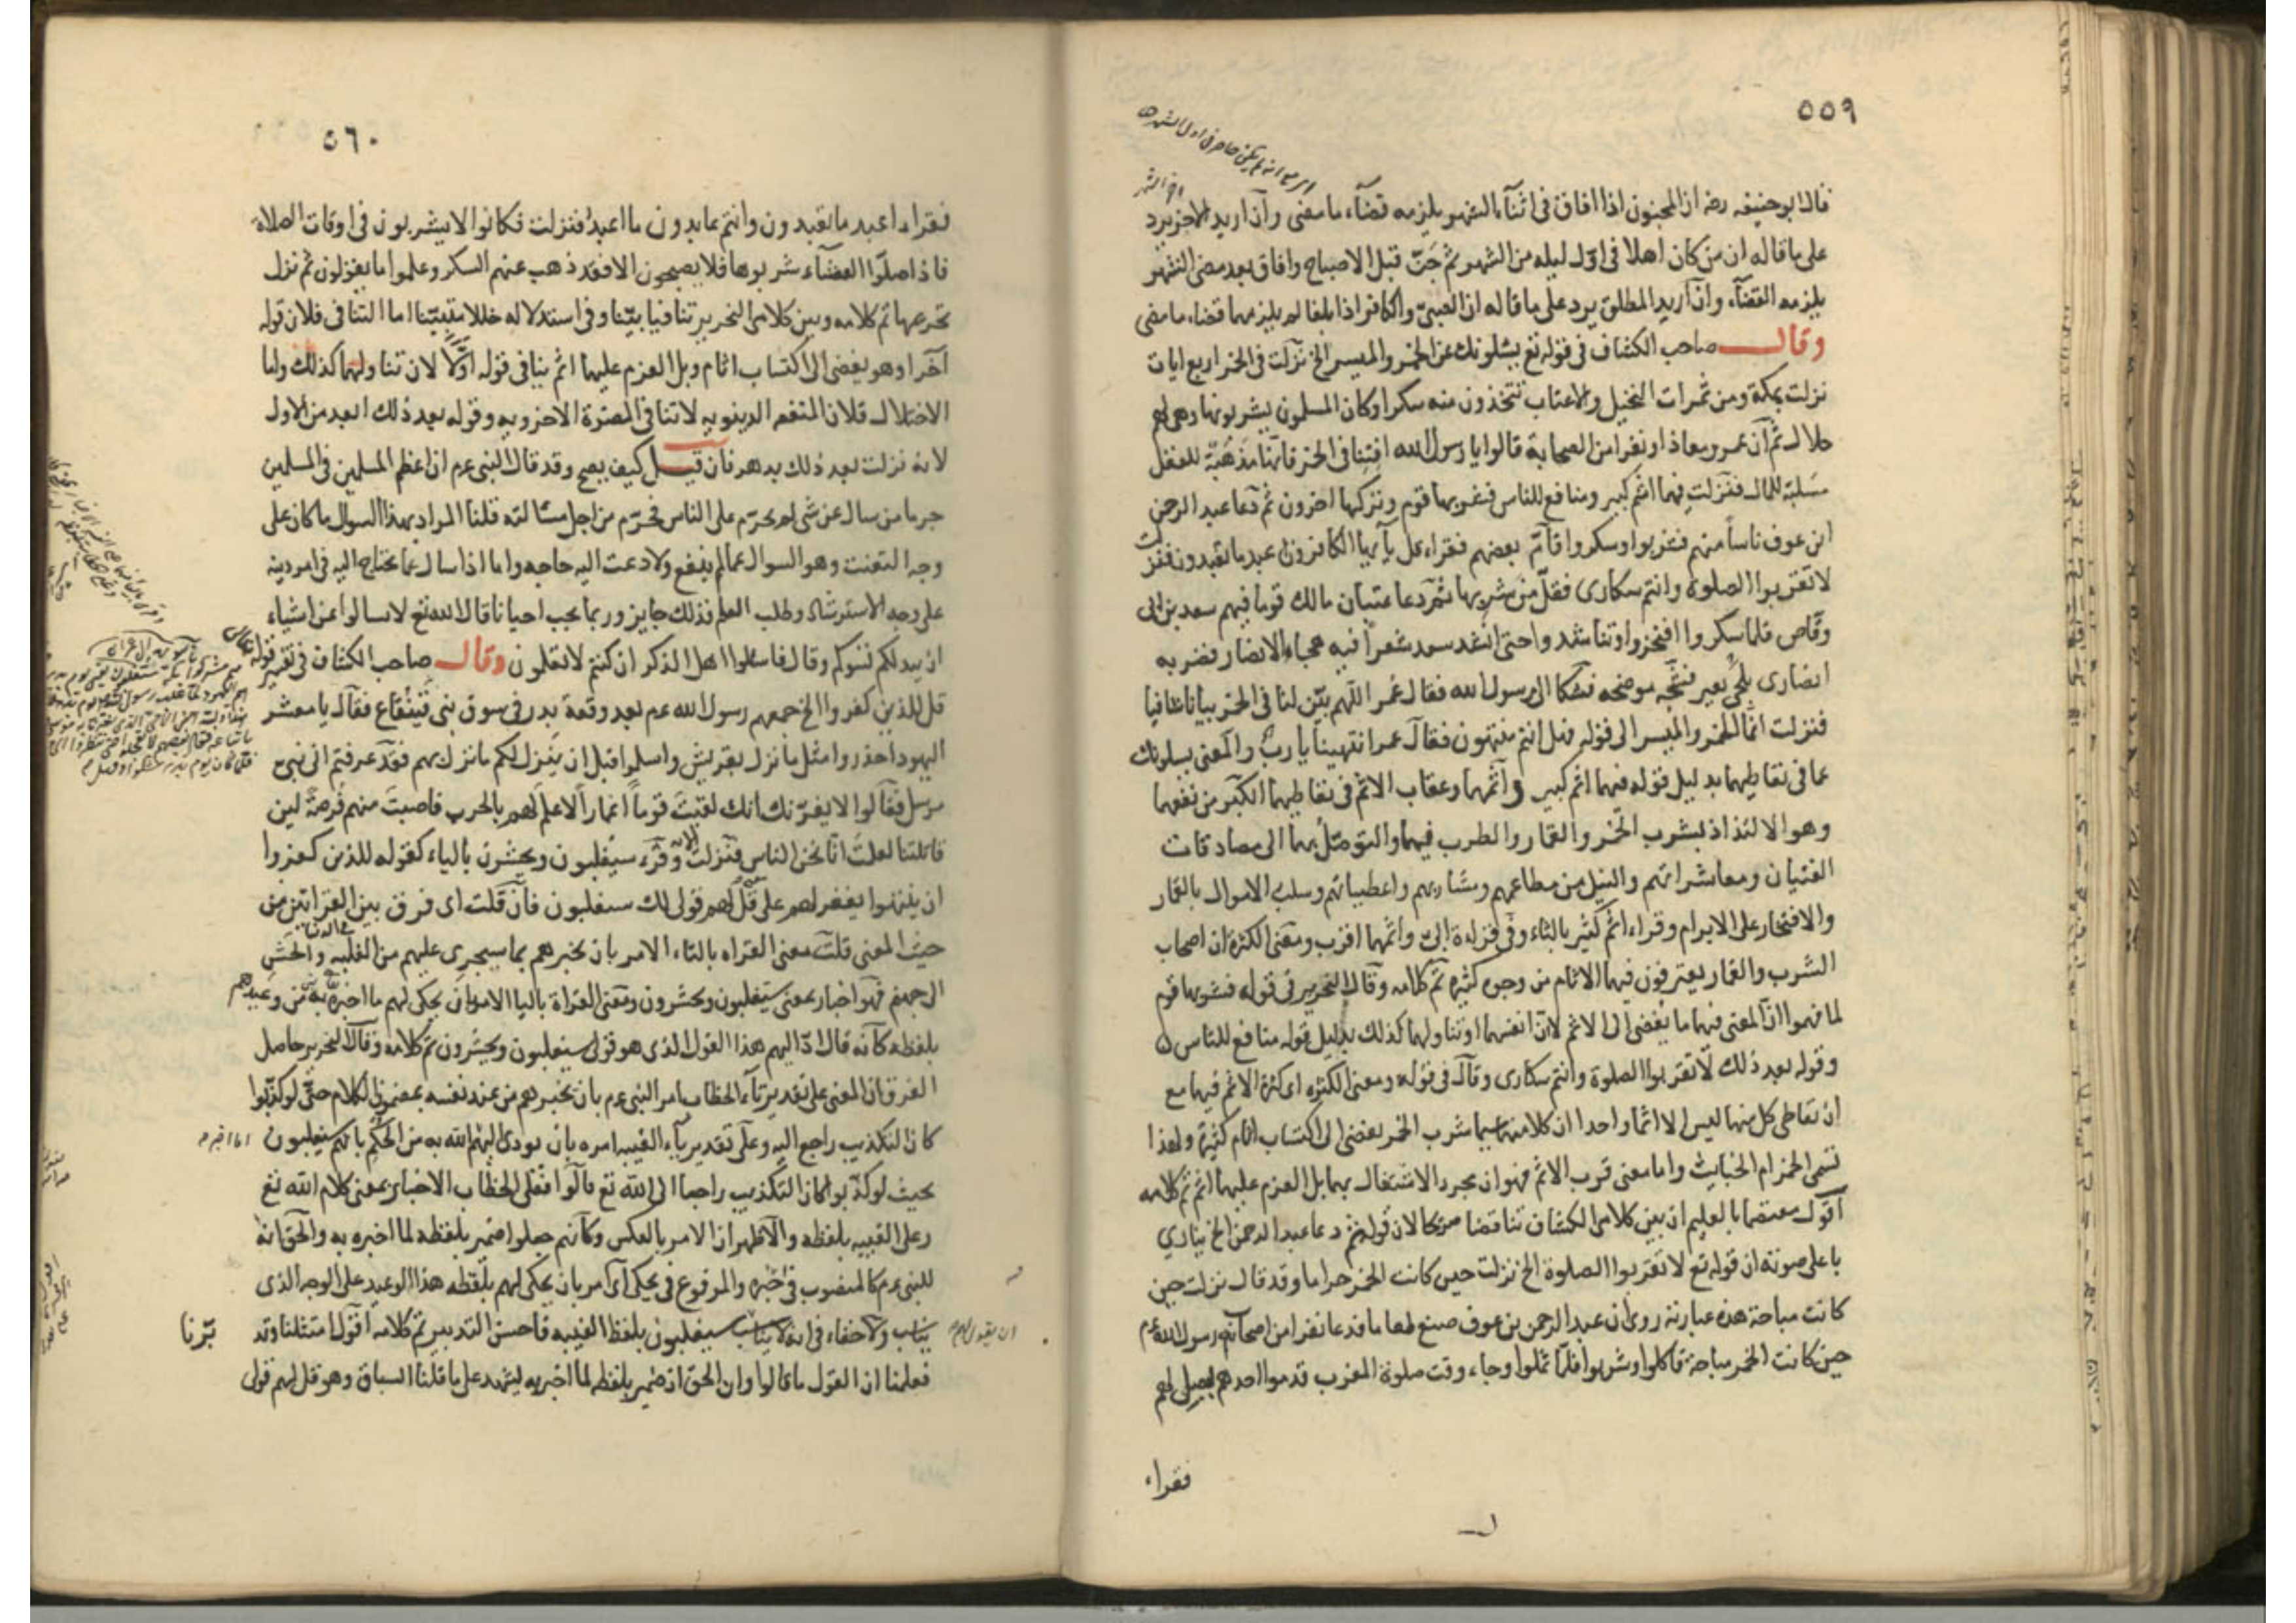 ٥٥٩
قال ابو حنيفه رضه ان المجنون اذا افاق فى اثنآء الشهر يلزمه قضآء ما مضى وآن اريد الاخر يرد
على ما قاله ان من كان اهلا فى اوّل ليله من الشهر ثم جَنّ قبل الاصباح وافاق بعد مضى الشهر
يلزمه القضآء وان آريد المطلق يرد على ما قاله ان الصبىّ والكافر اذا بلغا لم يلزمهما قضاء ما مضى
وقال صاحب الكشاف فى قوله تع يسٔلونك عن الخمر والميسر الخ نزلت فى الخمر اربع ايات
نزلت بمكة ومن ثمرات النخيل والاعناب تتخذون منه سكرا وكان المسلمون يشربونها وهى لهم
حلال ثم آن عمر ومعاذا ونفرا من الصحابة قالوا يا رسول الله افتنا فى الخمر فانها مَذهَبَة للعقل
مسلبة للمال فنزلت فيهما اثم كبير ومنافع للناس فشربها قوم وتركها اخرون ثم دعا عبد الرحمن
ابن عوف ناساً منهم فشربوا وسكروا فآمّ بعضهم فقراء قل يآ ايها الكافرون اعبد ما تعبدون فنزلت
لا تقربوا الصلوة وانتم سكارى فقلّ من شربها ثم دعا عتبان مالك قوما فيهم سعد بن ابى
وقّاص فلما سكروا افتخروا وتناشدوا حتى انشد سعد شعراً فيه هجاء الانصار فضربه
انصارى بلحى بعير فشجّه موضحه فشكا الى رسول الله فقال عمر اللّهم بيّن لنا فى الخمر بيانا شافيا
فنزلت انما الخمر والميسر الى قوله فهل انتم منتهون فقآل عمر انتهينا يا ربّ والمعنى يسلونك
عما فى تعاطيهما بدليل قوله فيهما اثم كبير وآثمهما وعقاب الاثم فى تعاطيهما اكبر من نفعهما
وهو الالتذاذ بشرب الخمر والقمار والطرب فيهما والتوصّل بهما الى مصادقات
الفتيان ومعاشراتهم والنيل من مطاعمهم ومشاربهم واعطياتهم وسلب الاموال بالقمار
والافتخار على الابرام وقراء اثم كثير بالثاء وفى قراءة ابىّ واثمهما اقرب ومعنى الكثرة ان اصحاب
الشرب والقمار يعترفون فيهما الاثام من وجوه كثيره تم كلامه وقال النحرير فى قوله فشربها قوم
لما فهموا ان المعنى فيهما ما يفضى الى الاثم لا ان انفسهما او تناولهما كذلك بدليل قوله منافع للناس
وقوله بعد ذلك لا تقربوا الصلوة وانتم سكارى وقآل فى قوله ومعنى الكثره اى كثرة الاثم فيهما مع
ان تعاطى كل منهما ليس الا اثما واحدا ان كلا منهما سيما شرب الخمر يفضى الى اكتساب اثام كثيرة ولهذا
تسمى الخمر ام الخبايث واما معنى قرب الاثم فهو ان مجرد الاشتغال بهما بل العزم عليهما اثم تم كلامه
آقول معتصما بالعليم ان بين كلامى الكشاف تناقضا لان قوله ثم دعا عبد الرحمن الخ ينادي
باعلى صوته ان قوله تع لا تقربوا الصلوة الخ نزلت حين كانت الخمر حراما وقد قال نزلت حين
كانت مباحة هذه عبارته روى ان عبد الرحمن بن عوف صنع طعاما فدعا نفرا من اصحاب رسول الله عم
حين كانت الخمر مباحة فاكلوا وشربوا فلمّا ثملوا وجاء وقت صلوة المغرب قدموا احدهم ليصلى لهم
فقراء
٥٦٠
فقراء اعبد ما تعبدون وانتم عابدون ما اعبد فنزلت فكانوا لا يشربون فى اوقات الصلاة
فاذا صلّوا العشآء شربوها فلا يصبحون الا فقد ذهب عنهم السكر وعلموا ما يقولون ثم نزل
تحريمها تم كلامه وبين كلامى النحرير تنافيا بيّنا وفى استدلاله خللا مبيّنا اما التنافى فلان قوله
آخرا وهو يفضى الى اكتساب اثام وبل العزم عليهما اثم ينافى قوله اوّلاً لان تناولهما كذلك واما
الاختلال فلان المنفعه الدنيويه لا تنافى المضرّة الاخرويه وقوله بعد ذلك ابعد من الاول
لانه نزلت بعد ذلك بدهر فآن قيل كيف يصح وقد قال النبى عم ان اعظم المسلمين فى المسلمين
جرما من سال عن شى لم يحرّم على الناس فحرّم من اجل مسٔالته قلنا المراد بهذا السوال ما كان على
وجه التعنت وهو السوال عما لم يقع ولا دعت اليه حاجه واما اذا سال عما يحتاج اليه فى امر دينه
على وجه الاسترشاد وطلب العلم فذلك جايز وربما يجب احيانا قال الله تع لا تسالوا عن اشياء
ان تبد لكم تسٔوكم وقال فاسٔلوا اهل الذكر ان كنتم لا تعلمون وقال صاحب الكشاف فى تفسير قوله تعالى
قل للذين كفروا الخ جمعهم رسول الله عم بعد وقعة بدر فى سوق بنى قينقاع فقآل يا معشر
اليهود احذروا مثل ما نزل بقريش واسلموا قبل ان ينزل لكم ما نزل بهم فقد عرفتم انى نبى
مرسل فقآلوا لا يغرّنك انك لقيتَ قوماً اغماراً لا علم لهم بالحرب فاصبتَ منهم فرصةً لئن
قاتلتنا لعلمتَ انّا نحن الناس فنزلت وقرٔء سيغلبون ويحشرون بالياء كقوله للذين كفروا
ان ينتهوا يغفر لهم على قل لهم قولى لك سيغلبون فآن قلت اى فرق بين القراتين من
حيث المعنى قلت معنى القراه بالتاء الامر بان يخبرهم بما سيجرى عليهم من الغلبه والحشر
الى جهنم فهو اخبار بمعنى سيغلبون ويحشرون ومعنى القراة باليا الامر بان يحكى لهم ما اخبره به من وعيدهم
بلفظه كانه قال ادّ اليهم هذا القول الذى هو قولى سيغلبون ويحشرون تم كلامه وقال النحرير حاصل
الفرق ان المعنى على تقدير تآء الخطاب امر النبى عم بان يخبرهم من عند نفسه بمضمون الكلام حتى لو كذّبوا
كان التكذيب راجعا اليه وعلى تقدير يآء الغيبه امره بان يودى اليهم الله به من الحكم بانهم سيغلبون
بحيث لو كذّبوا كان التكذيب راجعا الى الله تع قآلوا فعلى الخطاب الاخبار بمعنى كلام الله تع
وعلى الغيبه بلفظه والآظهر ان الامر بالعكس وكآنهم جعلوا ضمير بلفظه لما اخبره به والحق انه
للنبى عم كالمنصوب فى اخبره والمرفوع فى يحكى آى امر بان يحكى لهم بلفظه هذا الوعيد على الوجه الذى
يناسب ولا خفاء فى انه لا يناسب سيغلبون بلفظ الغيبه فاحسن التدبير تم كلامه آقول امتثلنا وقد
برّنا
فعلمنا ان القول ما قالوا وان الحق ان ضمير بلفظه لما اخبر به ليشهد على ما قلنا السباق وهو قل لهم قولى